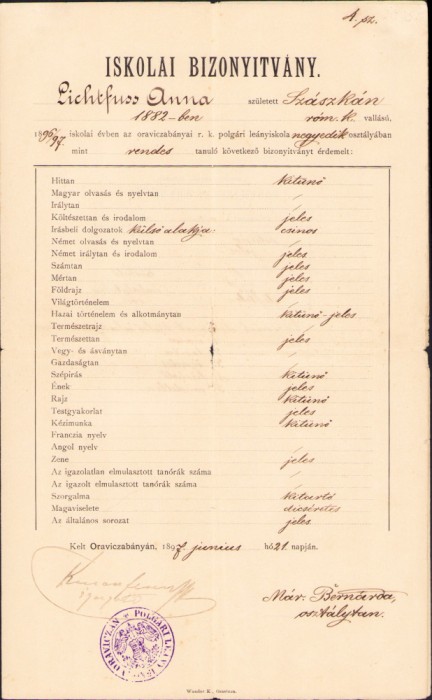 4. sz.
ISKOLAI BIZONYITVÁNY.
Lichtfuss Anna született Szászkán
1882-ben róm. k. vallású,
1896/97. iskolai évben az oraviczabányai r. k. polgári leányiskola negyedik osztályában
mint rendes tanuló következő bizonyitványt érdemelt:
Hittan kitünő
Magyar olvasás és nyelvtan
Irálytan
Költészettan és irodalom jeles
Irásbeli dolgozatok külső alakja: csinos
Német olvasás és nyelvtan
Német irálytan és irodalom jeles
Számtan jeles
Mértan jeles
Földrajz jeles
Világtörténelem
Hazai történelem és alkotmánytan kitünő-jeles
Természetrajz
Természettan jeles
Vegy- és ásványtan
Gazdaságtan
Szépirás kitünő
Ének jeles
Rajz kitünő
Testgyakorlat jeles
Kézimunka kitünő
Franczia nyelv
Angol nyelv
Zene jeles
Az igazolatlan elmulasztott tanórák száma
Az igazolt elmulasztott tanórák száma
Szorgalma kitartó
Magaviselete dicséretes
Az általános sorozat jeles
Kelt Oraviczabányán, 1897 junius hó 21. napján.
Már. Bernarda,
osztálytan.
POLGÁRI
Wunder K.,